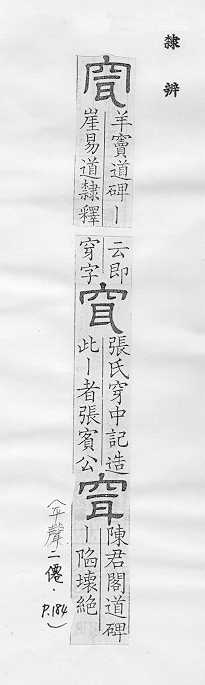 隸辨
羊竇道碑｜
崖易道隸釋
云即
穿字
張氏穿中記造
此｜者張賓公
陳君閣道碑
｜陷壞絕
（平聲二僊．P.184）